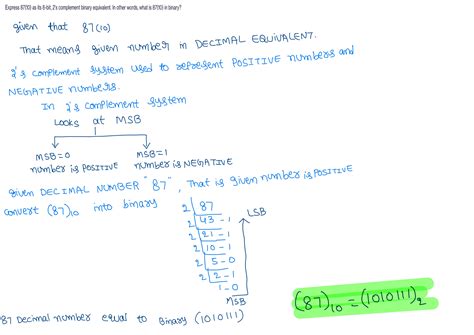 Express 87(10) as its 8-bit, 2's complement binary equivalent. In other words, what is 87(10) in binary?
given that 87(10)
That means given number in DECIMAL EQUIVALENT.
2's complement system used to represent POSITIVE numbers and
NEGATIVE numbers.
In 2's complement system
Looks at MSB
MSB=0 MSB=1
number is POSITIVE number is NEGATIVE
given DECIMAL NUMBER "87", That is given number is POSITIVE
convert (87)10 into binary
2 87
2 43 - 1
2 21 - 1
2 10 - 1
2 5 - 0
2 2 - 1
1 - 0
LSB
MSB
(87)10 = (1010111)2
87 Decimal number equal to Binary (1010111)